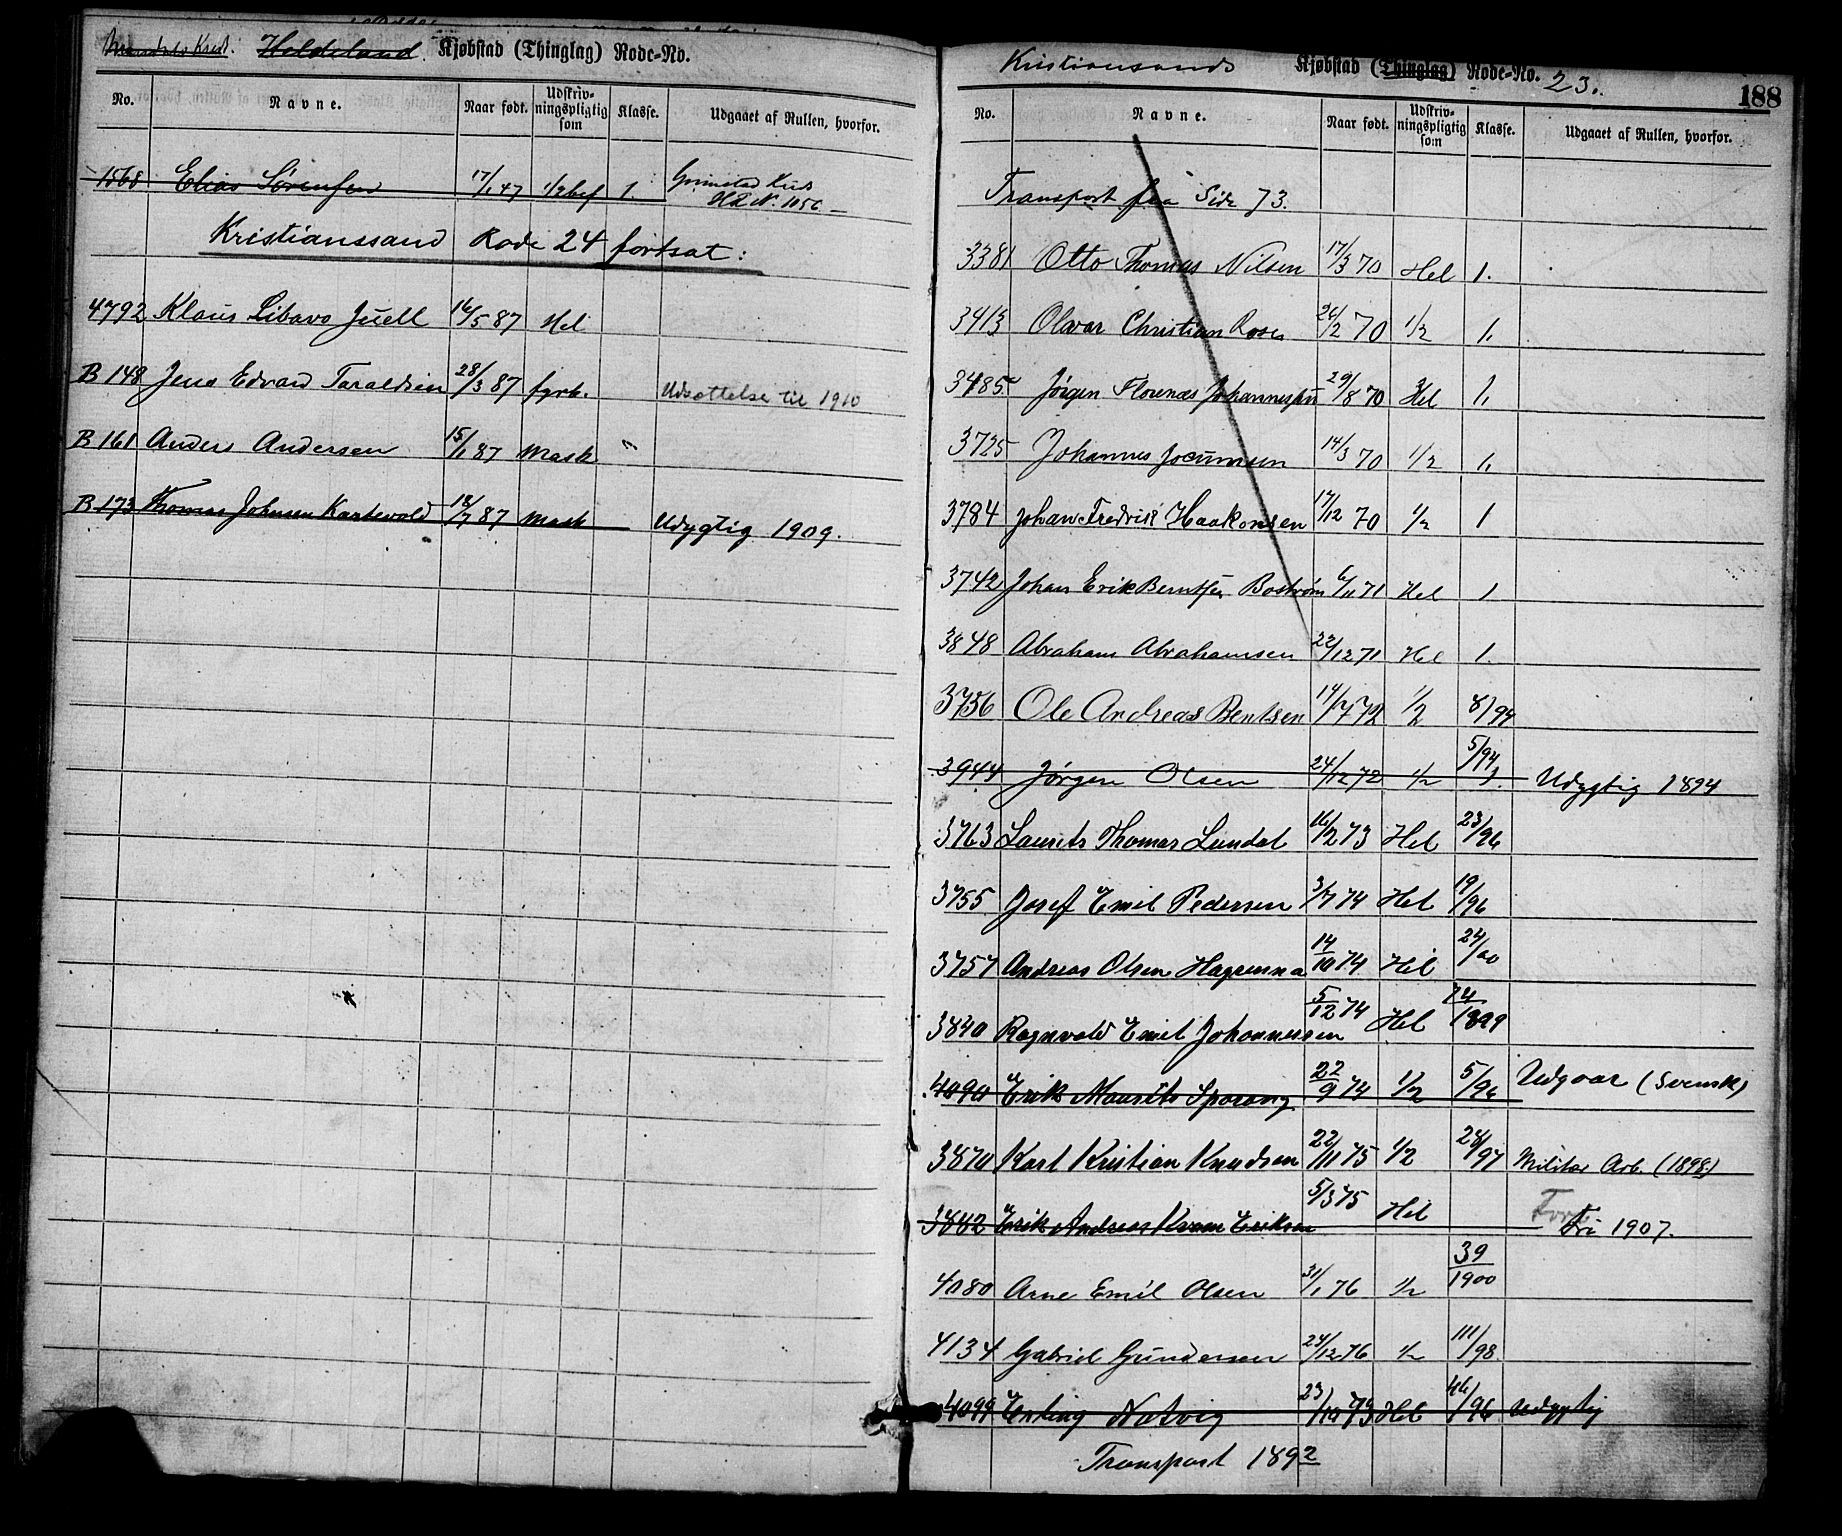 Holdeland. Kjøbstad (Thinglag) Rode-No.
No. Navne. Naar født. Udskrivningspligtig som Klasse. Udgaaet af Rullen, hvorfor.
1568 Elias Sörensen 17/1 47 1/2 bef 1. Grimstad Krds
N. 1056. —
Kristianssand Rode 24 fortsat:
4792 Klaus Libavo Juell 16/5 87 Hel
B 148 Jens Edvard Taraldsen 28/3 87 fyrb. Udsættelse til 1910
B 161 Anders Andersen 15/1 87 Mask "
B 173 Thomas Johnsen Kartevold 18/7 87 Mask Udygtig 1909.
Kristianssands Kjøbstad (Thinglag) Rode-No. 23.
188
No. Navne. Naar født. Udskrivningspligtig som Klasse. Udgaaet af Rullen, hvorfor.
Transport fra Side 73.
3381 Otto Thomas Nilsen 17/3 70 Hel 1.
3413 Olvar Christian Rose 26/2 70 1/2 1.
3485 Jørgen Florenæs Johannessen 29/8 70 Hel 1.
3725 Johannes Jocumsen 14/3 70 1/2 1.
3784 Johan Fredrik Haakonsen 17/12 70 1/2 1
3742 Johan Erik Berntsen Boström 6/11 71 Hel 1
3848 Abraham Abrahamsen 22/12 71 Hel 1.
3756 Ole Andreas Bentsen 14/7 72 1/2 8/94
3944 Jørgen Olsen 24/12 72 1/2 5/94 1. Udygtig 1894
3763 Laurits Thomas Lundal 16/2 73 Hel 23/96
3755 Josef Emil Pedersen 3/7 74 Hel 19/96
3757 Andreas Olsen 14/10 74 Hel 24/00
3840 Ragnvald Emil Johannessen 5/12 74 Hel 74/1899
4090 Erik Mauritz Sparang 22/9 74 1/2 5/96 Udgaar (Svensk)
3870 Karl Kristian Knudsen 22/11 75 1/2 28/97 Militær Arb. (1898)
3882 Erik Andreas Kvam Eriksen 5/3 75 Hel Fri 1907.
4080 Arne Emil Olsen 31/1 76 1/2 39/1900
4134 Gabriel Gundersen 24/12 76 1/2 111/98
4099 Erling Natvig 23/10 73 Hel 46/96 Udygtig
Transport 1892